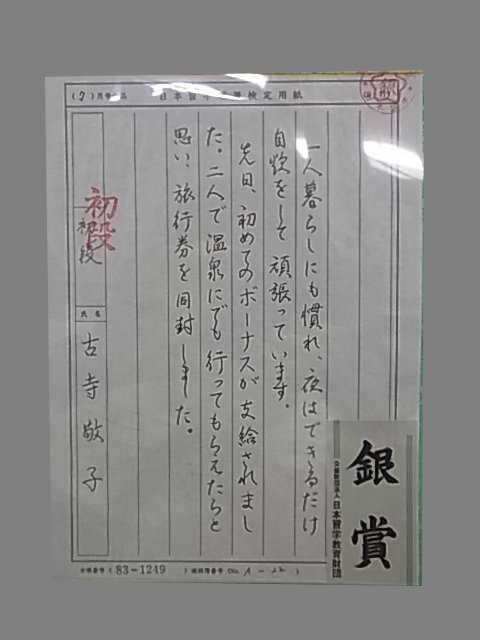 (7)月号
日本習字
検定用紙
一人暮らしにも慣れ、夜はできるだけ
自炊をして頑張っています。
先日、初めてのボーナスが支給されまし
た。二人で温泉にでも行ってもらえたらと
思い、旅行券を同封しました。
初段
初段
氏名
古寺敬子
銀賞
公益財団法人 日本習字教育財団
(83-1249
(No. A-22)